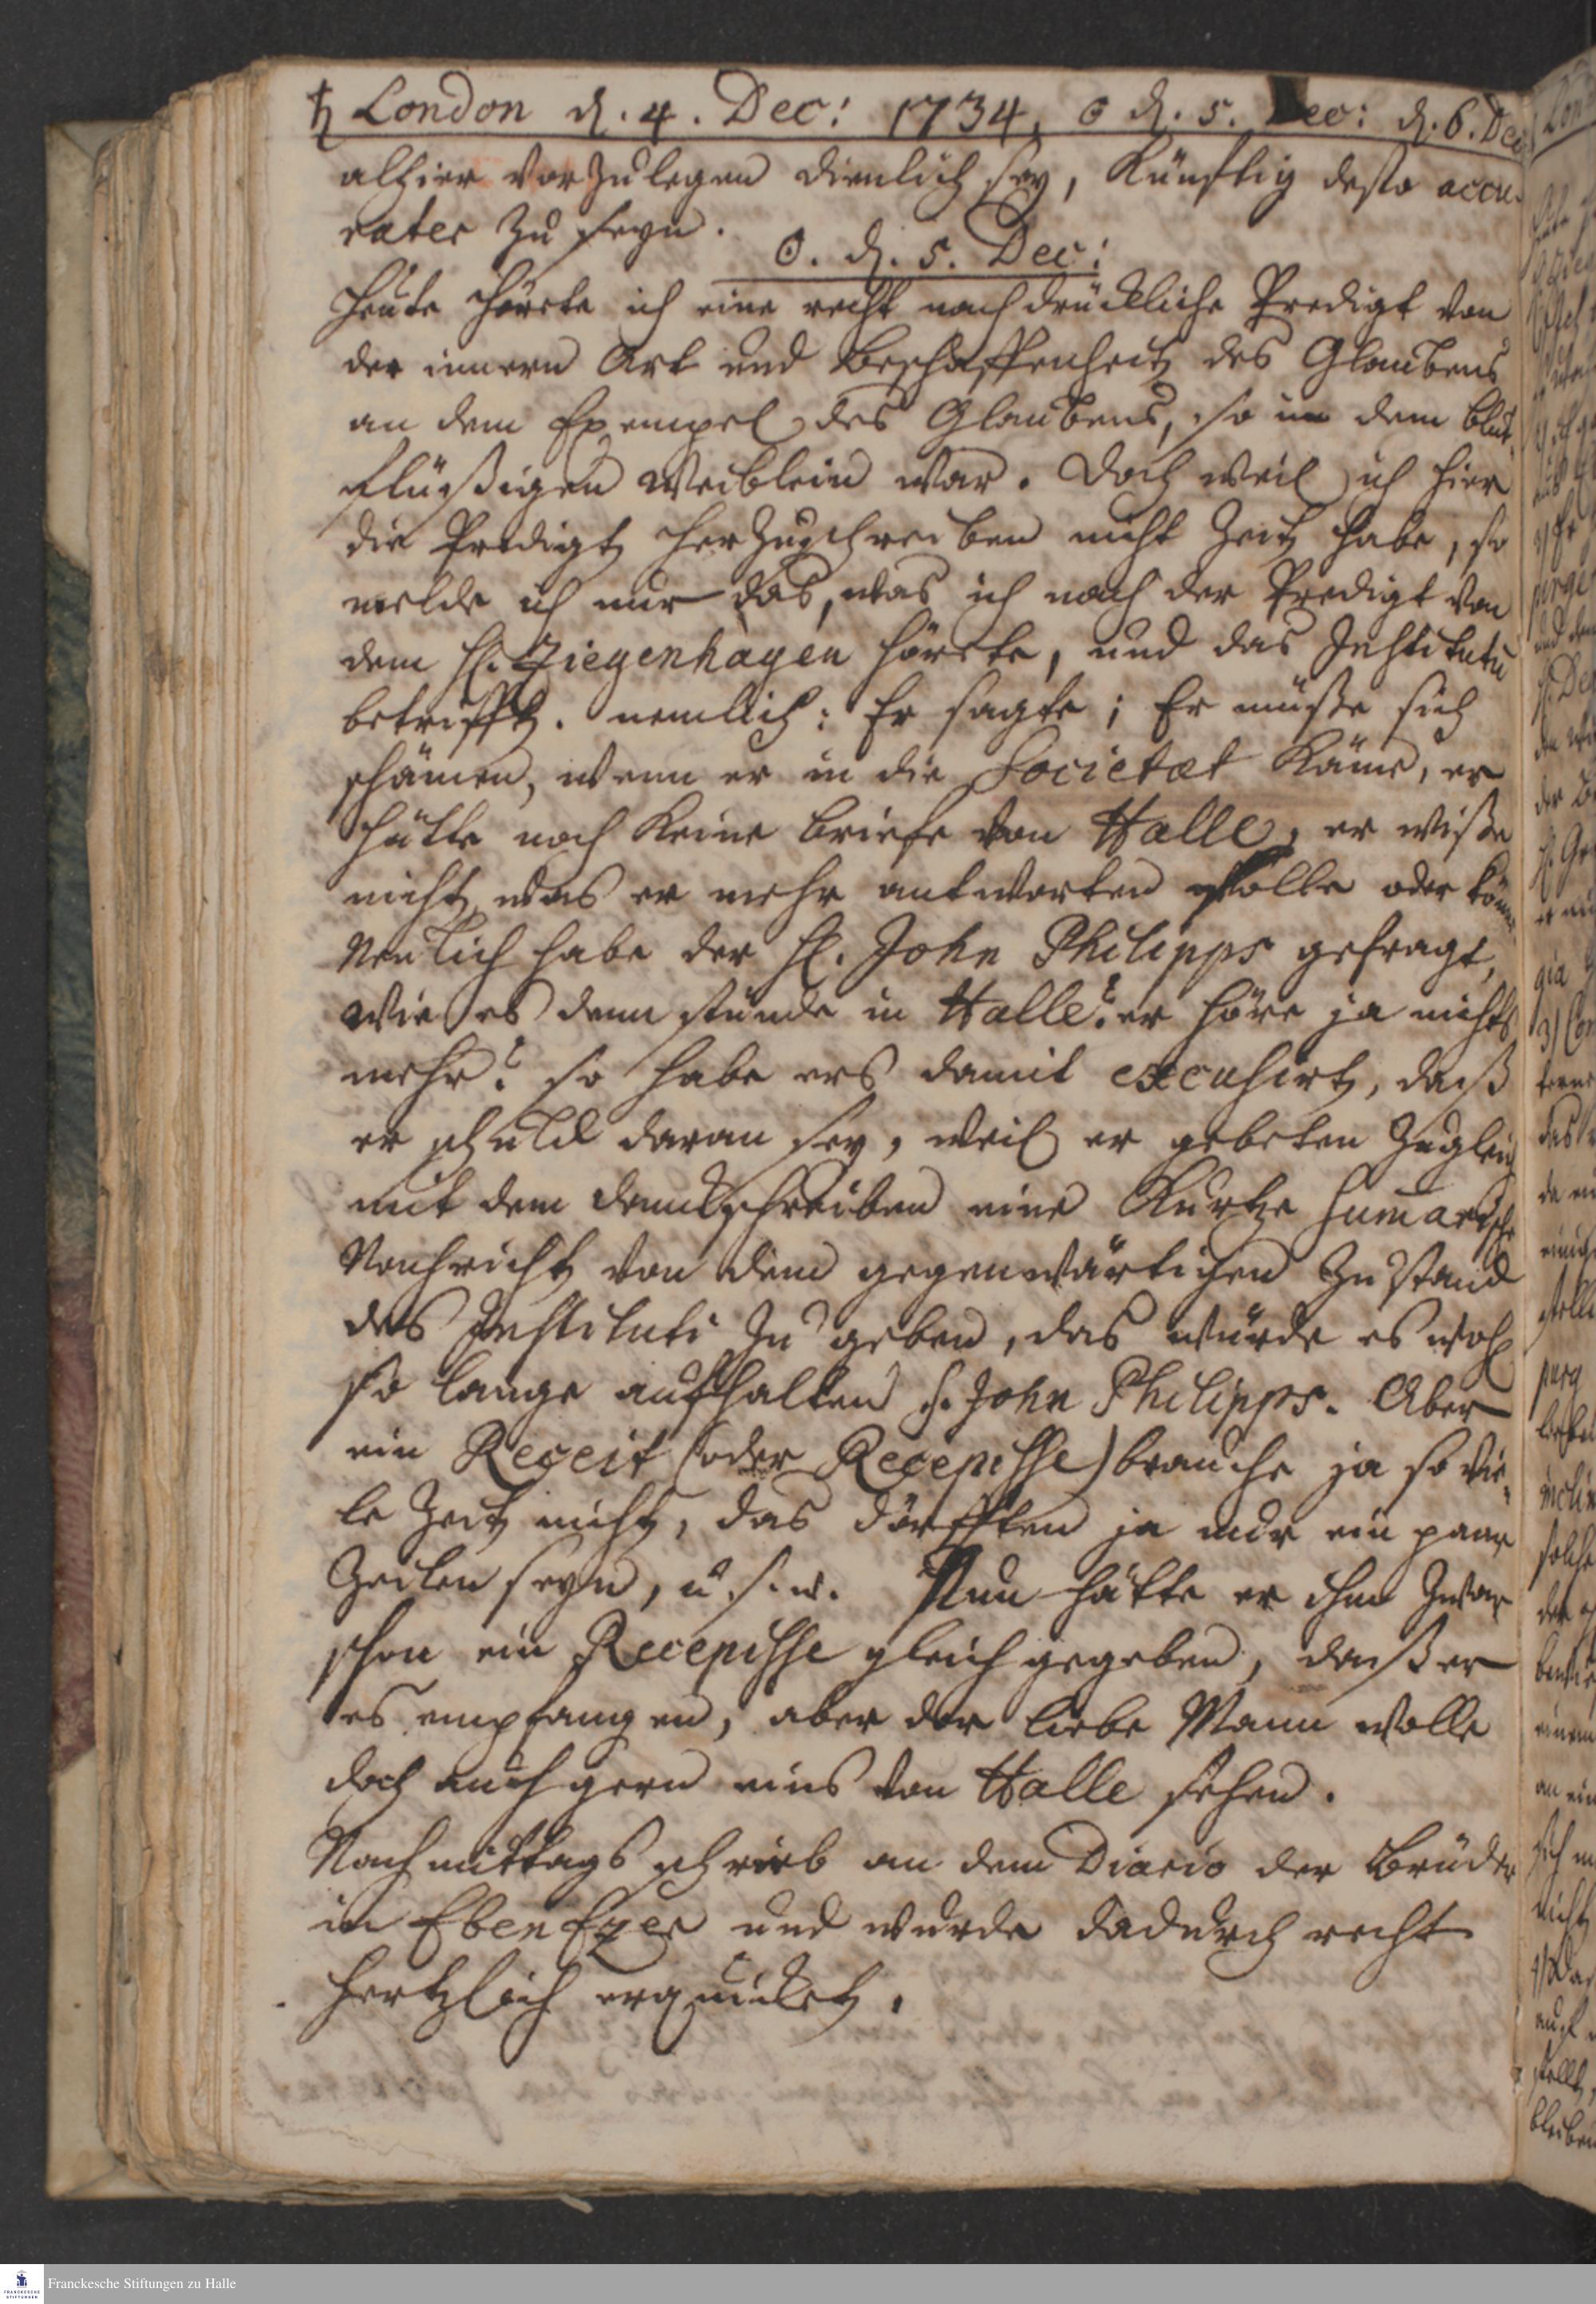 ♄ London d. 4. Dec: 1734, ☉ d. 5. Dec: d. 6. Dec
alhier vorzulegen dienlich sey, künftig desto accu-
rater zu seyn.
☉. d. 5. Dec:
Heute hörete ich eine recht nachdrückliche Predigt von
der innern Art und Beschaffenheit des Glaubens
an dem Exempel des Glaubens, so in dem blut-
flüßigen Weiblein war. Doch weil ich hier
die Predigt herzuschreiben nicht Zeit habe, so
melde ich nur das, was ich nach der Predigt von
dem H. Ziegenhagen hörete, und das Institutu
betrifft. nemlich: Er sagte; Er müße sich
schämen, wenn er in die Societæt käme, er
hätte noch keine Briefe von Halle, er wiße
nicht, was er mehr antworten solle oder könne
Neulich habe der H. John Philipps gefragt,
wie es denn stünde in Halle? er höre ja nichts
mehr? so habe ers damit excusirt, daß
er schuld daran sey, weil er gebeten zugleich
mit dem Danckschreiben eine kurtze sumarische
Nachricht von dem gegenwärtigen Zustand
des Instituti zu geben, das würde es wohl
so lange aufhalten H. John Philipps. Aber
ein Receit (oder Recepisse) brauche ja so vie-
le Zeit nicht, das dörfften ja nur ein paar
Zeilen seyn, u. s. w. Nun hätte er ihm zwar
schon ein Recepisse gleich gegeben, daß er
es empfangen, aber der liebe Mann wolle
doch auch gern eins von Halle sehen.
Nachmittags schrieb an dem Diario der Brüder
in EbenEzer und wurde dadurch recht
hertzlich erquicket.
Franckesche Stiftungen zu Halle